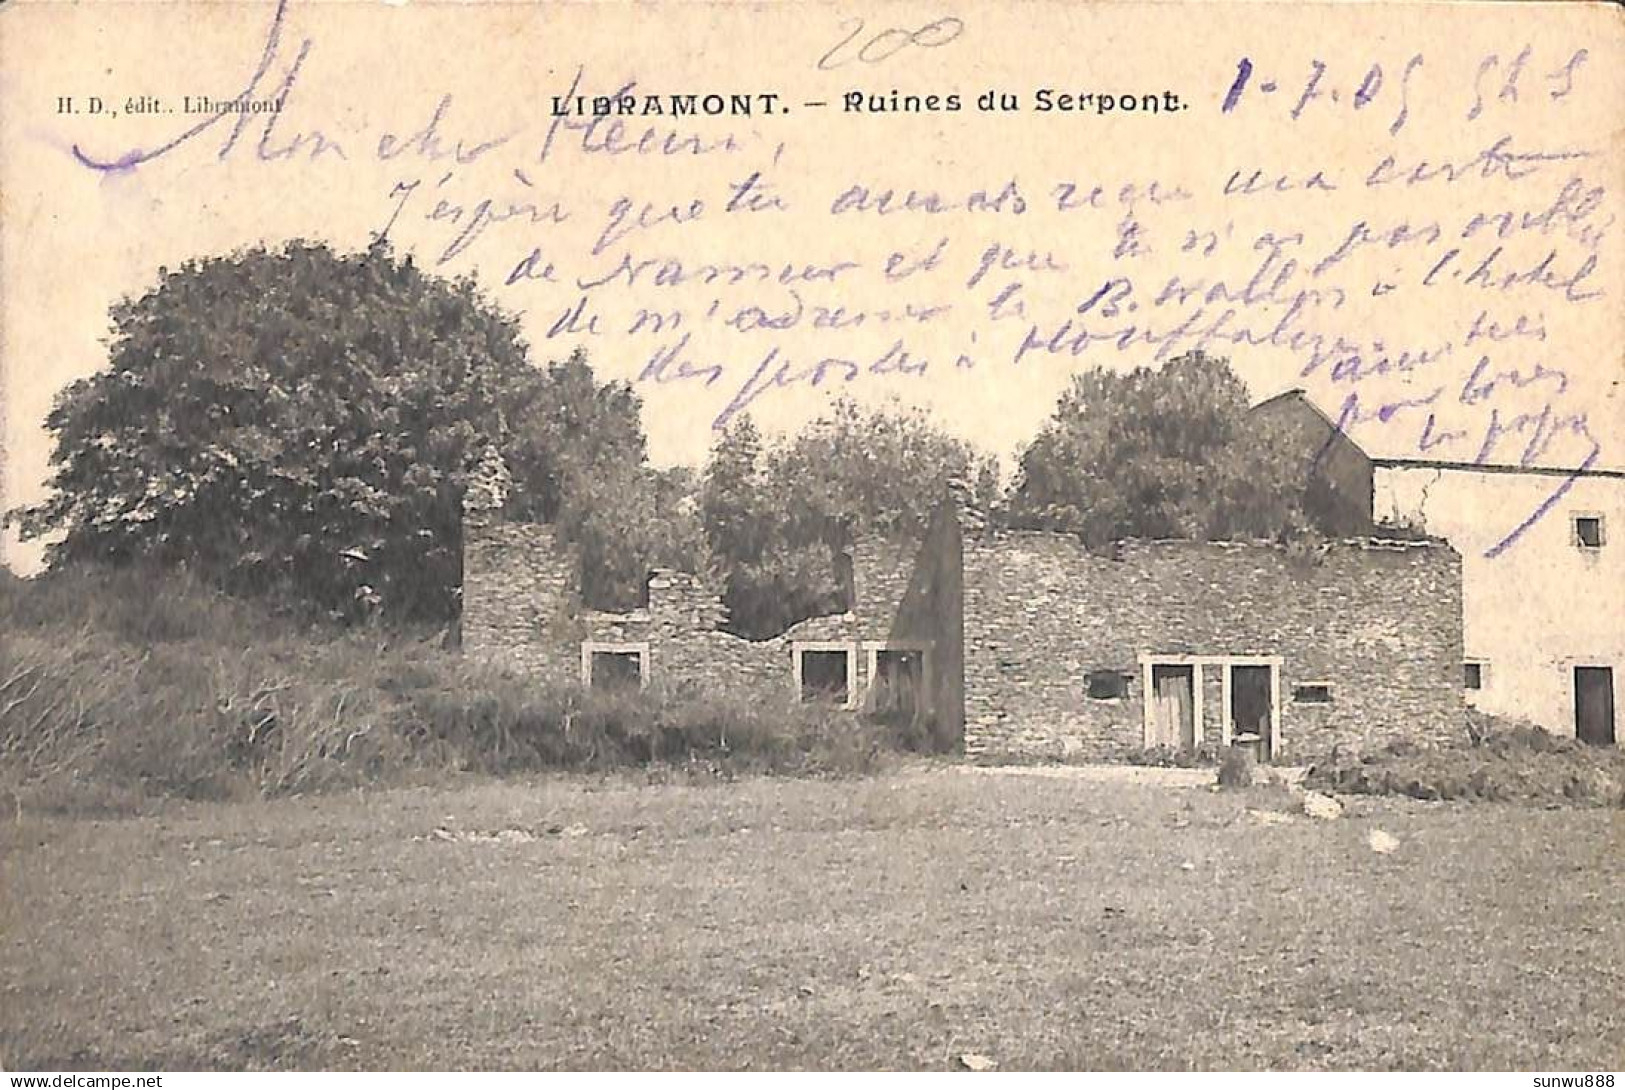 200
H. D., édit.. Libramont
LIBRAMONT. — Ruines du Serpont.
1-7.05 5h S
Mon cher Henri,
J'espère que tu auras reçu ma carte
de Namur et que tu n'as pas oublié
de m'adresser le B. Wallon à l'hotel
des postes à Houffalize.
pour
ton papa
sunwu888